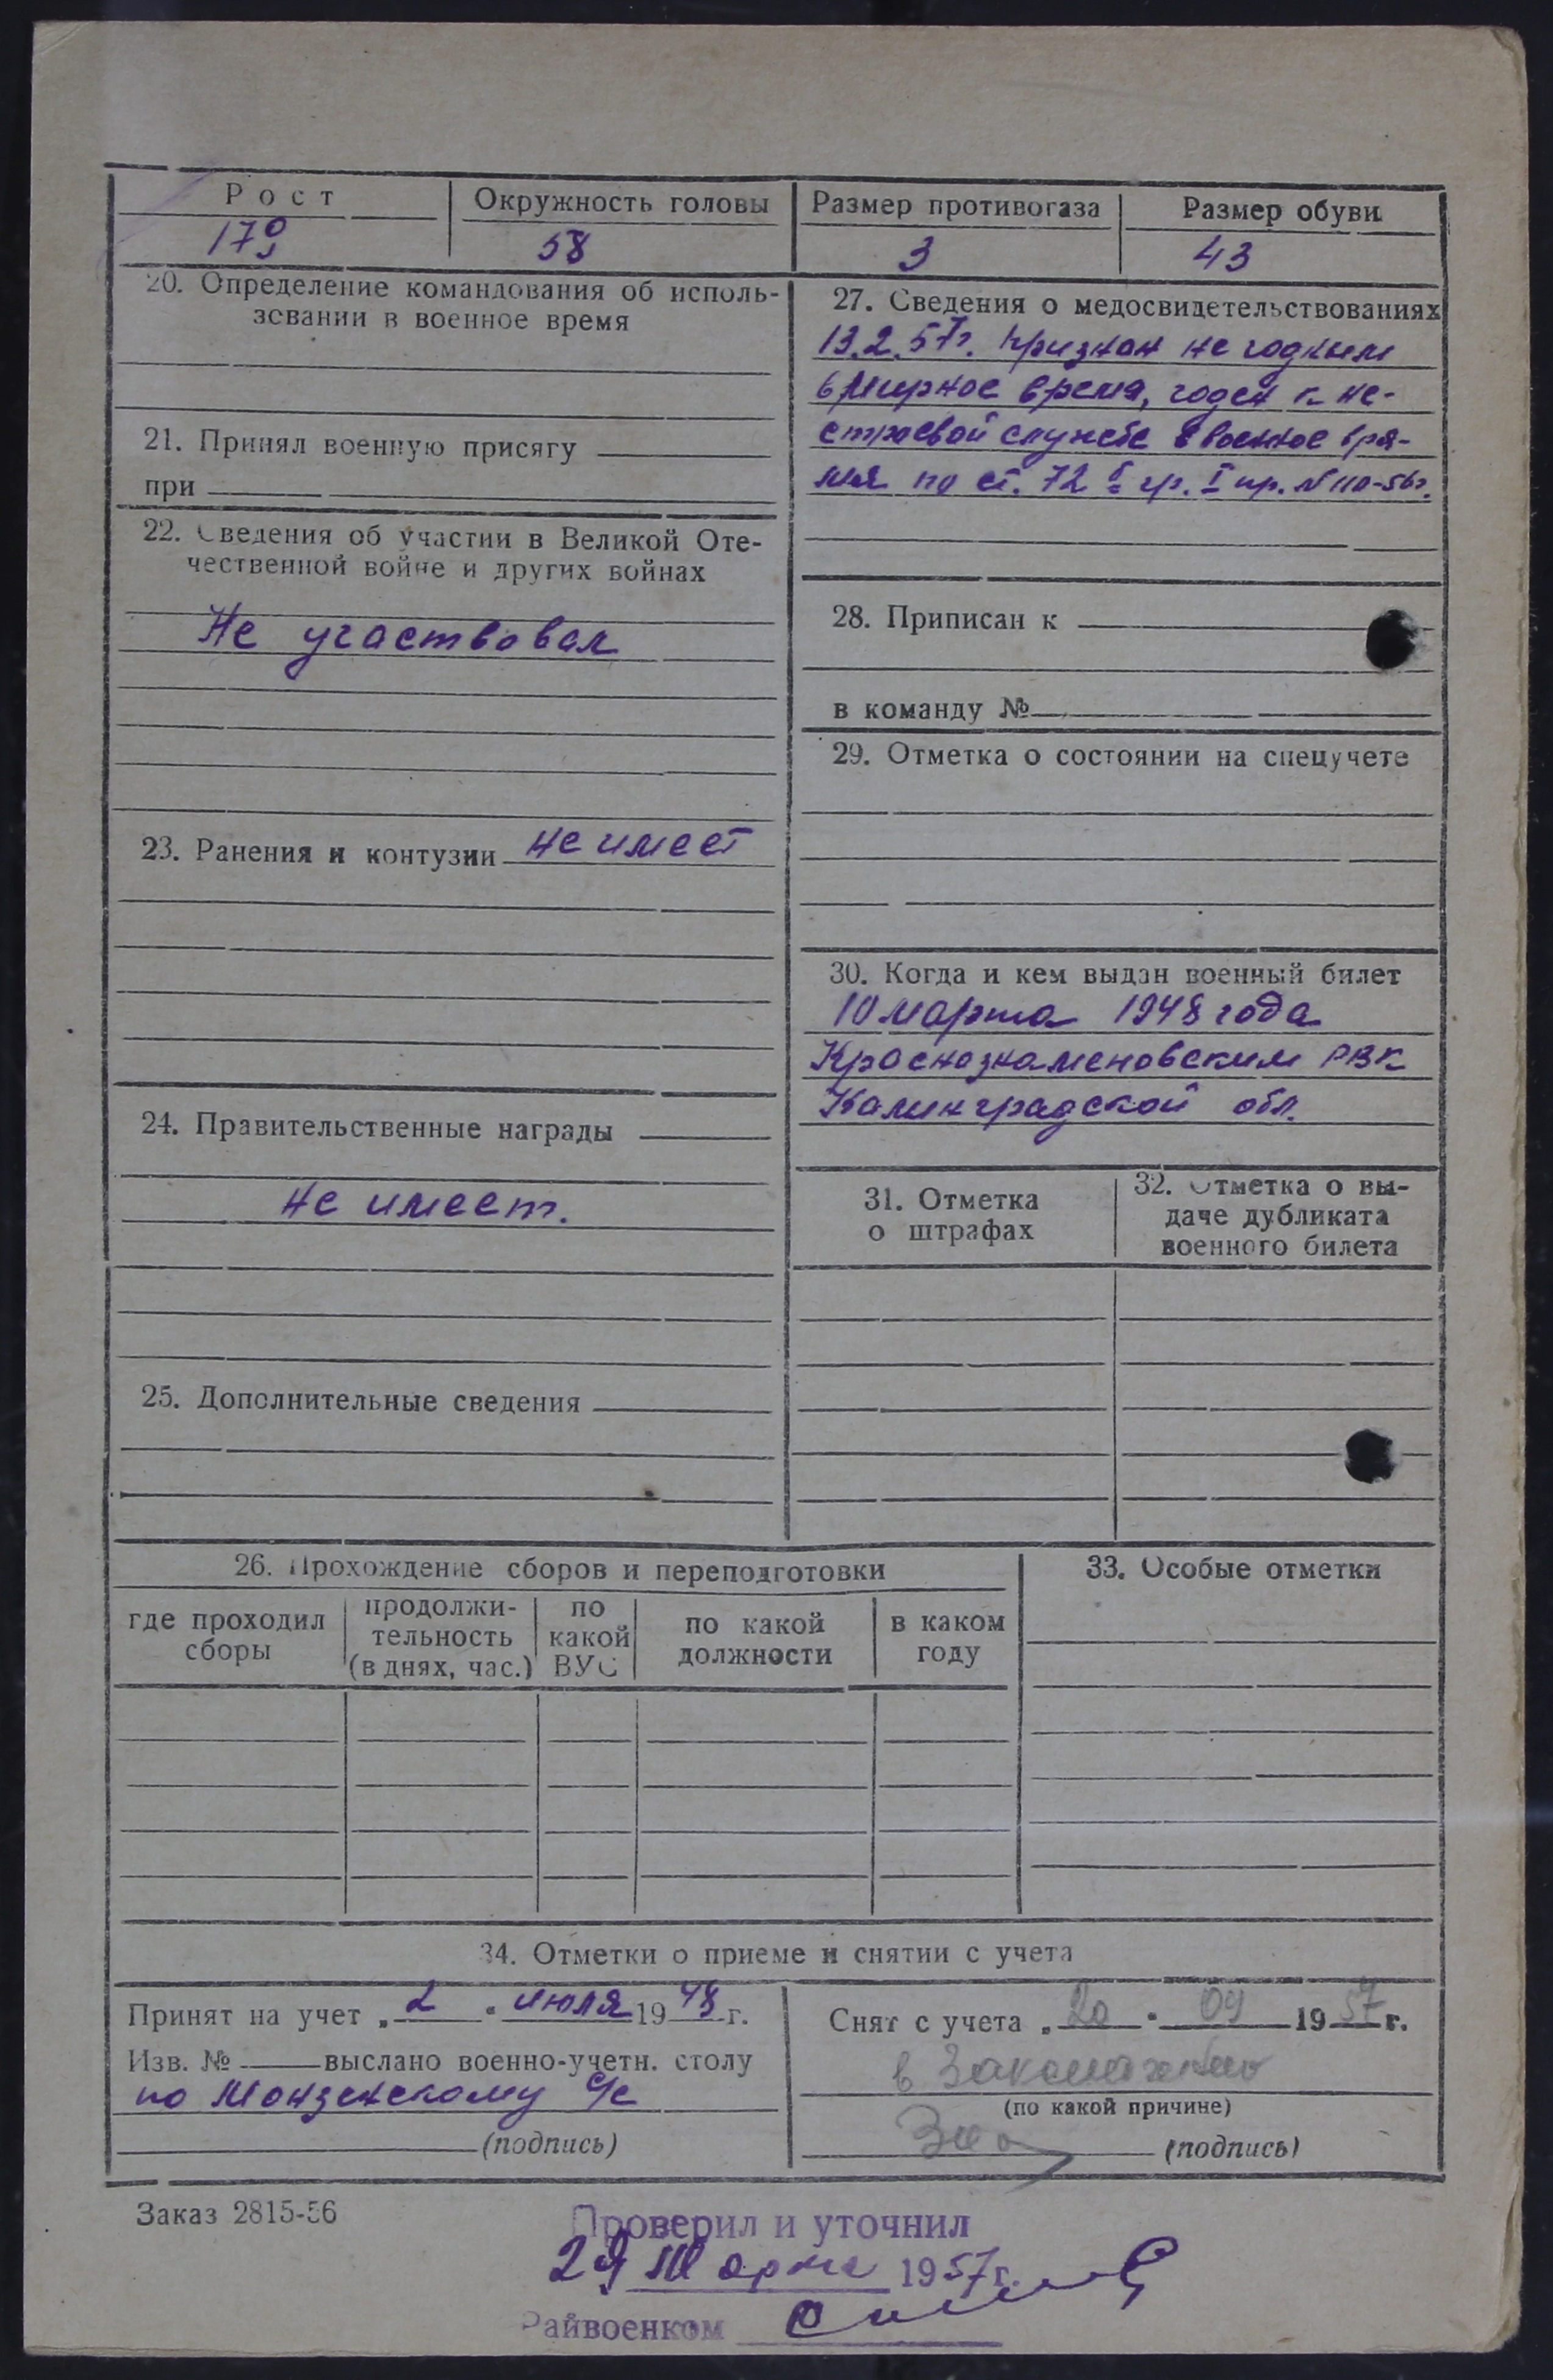 Рост Окружность головы Размер противогаза Размер обуви
58 3 43
20. Определение командования об исполь-
зовании в военное время
21. Принял военную присягу
при
22. Сведения об участии в Великой Оте-
чественной войне и других войнах
Не участвовал
23. Ранения и контузии не имеет
24. Правительственные награды
не имеет.
25. Дополнительные сведения
27. Сведения о медосвидетельствованиях
13.2.57г. признан не годным
в мирное время, годен к не-
строевой службе в военное вре-
мя по ст. 72 гр. I пр. N 110-56г.
28. Приписан к
в команду №
29. Отметка о состоянии на спецучете
30. Когда и кем выдан военный билет
10 марта 1948 года
Краснознаменовским РВК
Калинградской обл.
31. Отметка
о штрафах
32. Отметка о вы-
даче дубликата
военного билета
26. Прохождение сборов и переподготовки
где проходил
сборы
продолжи-
тельность
(в днях, час.)
по
какой
ВУС
по какой
должности
в каком
году
33. Особые отметки
34. Отметки о приеме и снятии с учета
Принят на учет „2" июля 1948 г.
Изв. № выслано военно-учетн. столу
по Монзенскому с/с
(подпись)
Снят с учета „20" 09 1957 г.
в
(по какой причине)
(подпись)
Заказ 2815-56
Проверил и уточнил
29 Марта 1957 г.
Райвоенком